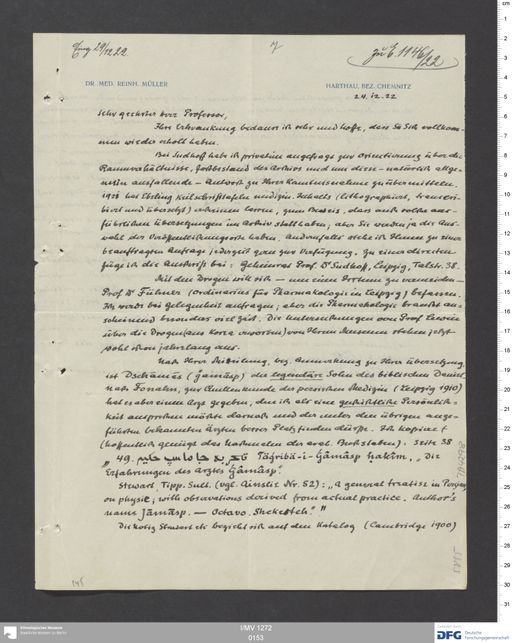 Eing 29/12 22
zu E. 1146/22
DR. MED. REINH. MÜLLER
HARTHAU, BEZ. CHEMNITZ
24.12.22
Sehr geehrter Herr Professor,
Ihre Erkrankung bedaure ich sehr und hoffe, dass Sie Sich vollkom-
men wieder erholt haben.
Bei Sudhoff habe ich privatim angefragt zur Orientierung über die
Raumverhältnisse, des Archivs und um diese – natürlich allge-
mein ausfallende – Antwort zu Ihrer Kenntnisnahme zu übermitteln.
hat Ebeling Keilschrifttafeln medizin. Inhalts (lithographiert, transcri-
biert und übersetzt) erscheinen lassen, zum Beweis, dass auch solche aus-
führlichen Übersetzungen im Archiv statthaben; aber Sie werden ja die Aus-
wahl der Veröffentlichungsorte haben. Andernfalls stehe ich Ihnen zu einer
beauftragten Anfrage jederzeit gern zur Verfügung. Zu einer direkten
füge ich die Anschrift bei: Geheimrat Prof. Dr Sudhoff, Leipzig, Talstr. 38.
Mit den Drogen will sich – um einen Irrtum zu vermeiden –
Prof. Dr Fühner (Ordinarius für Pharmakologie in Leipzig) befassen.
Ich werde bei Gelegenheit anfragen; aber die Pharmakologie braucht an-
scheinend besonders viel Zeit. Die Untersuchungen von Prof. Lewin
über die Drogen (aus Korea erworben) von Ihrem Museum stehen jetzt
wohl schon jahrelang aus.
Nach Ihrer Mitteilung, bez. Anmerkung zu Ihrer Übersetzung,
ist Dschāmās (Ǵamāsp) der legendäre Sohn des biblischen Daniel.
Nach Fonahn, zur Quellenkunde der persischen Medizin (Leipzig 1910)
hat es aber einen Arzt gegeben, den ich als eine geschichtliche Persönlich-
keit ansprechen möchte darnach und der unter den übrigen ange-
führten bekannten Ärzten Platz finden dürfte. Ich kopiere
(hoffentlich genügt das Nachmalen der arab. Buchstaben): Seite 38
„49. تجربه جاماسپ حكيم Taǵriba-i-Ǵāmāsp ḥakīm. „Die
Erfahrungen des Arztes Ǵāmāsp".
Stewart, Tipp. Sult. (vgl. Ainslie Nr. 52): „a general treatise in Persian
on physic; with observations derived from actual practice. Author's
name Jāmāsp. — Octavo. Shekesteh." "
Die Notiz Stewart etc bezieht sich auf den Katalog (Cambridge 1900)
145
Ethnologisches Museum
Staatliche Museen zu Berlin
I/MV 1272
0153
DFG
Deutsche
Forschungsgemeinschaft
cm
1
2
3
4
5
6
7
8
9
10
11
12
13
14
15
16
17
18
19
20
21
22
23
24
25
26
27
28
29
30
31